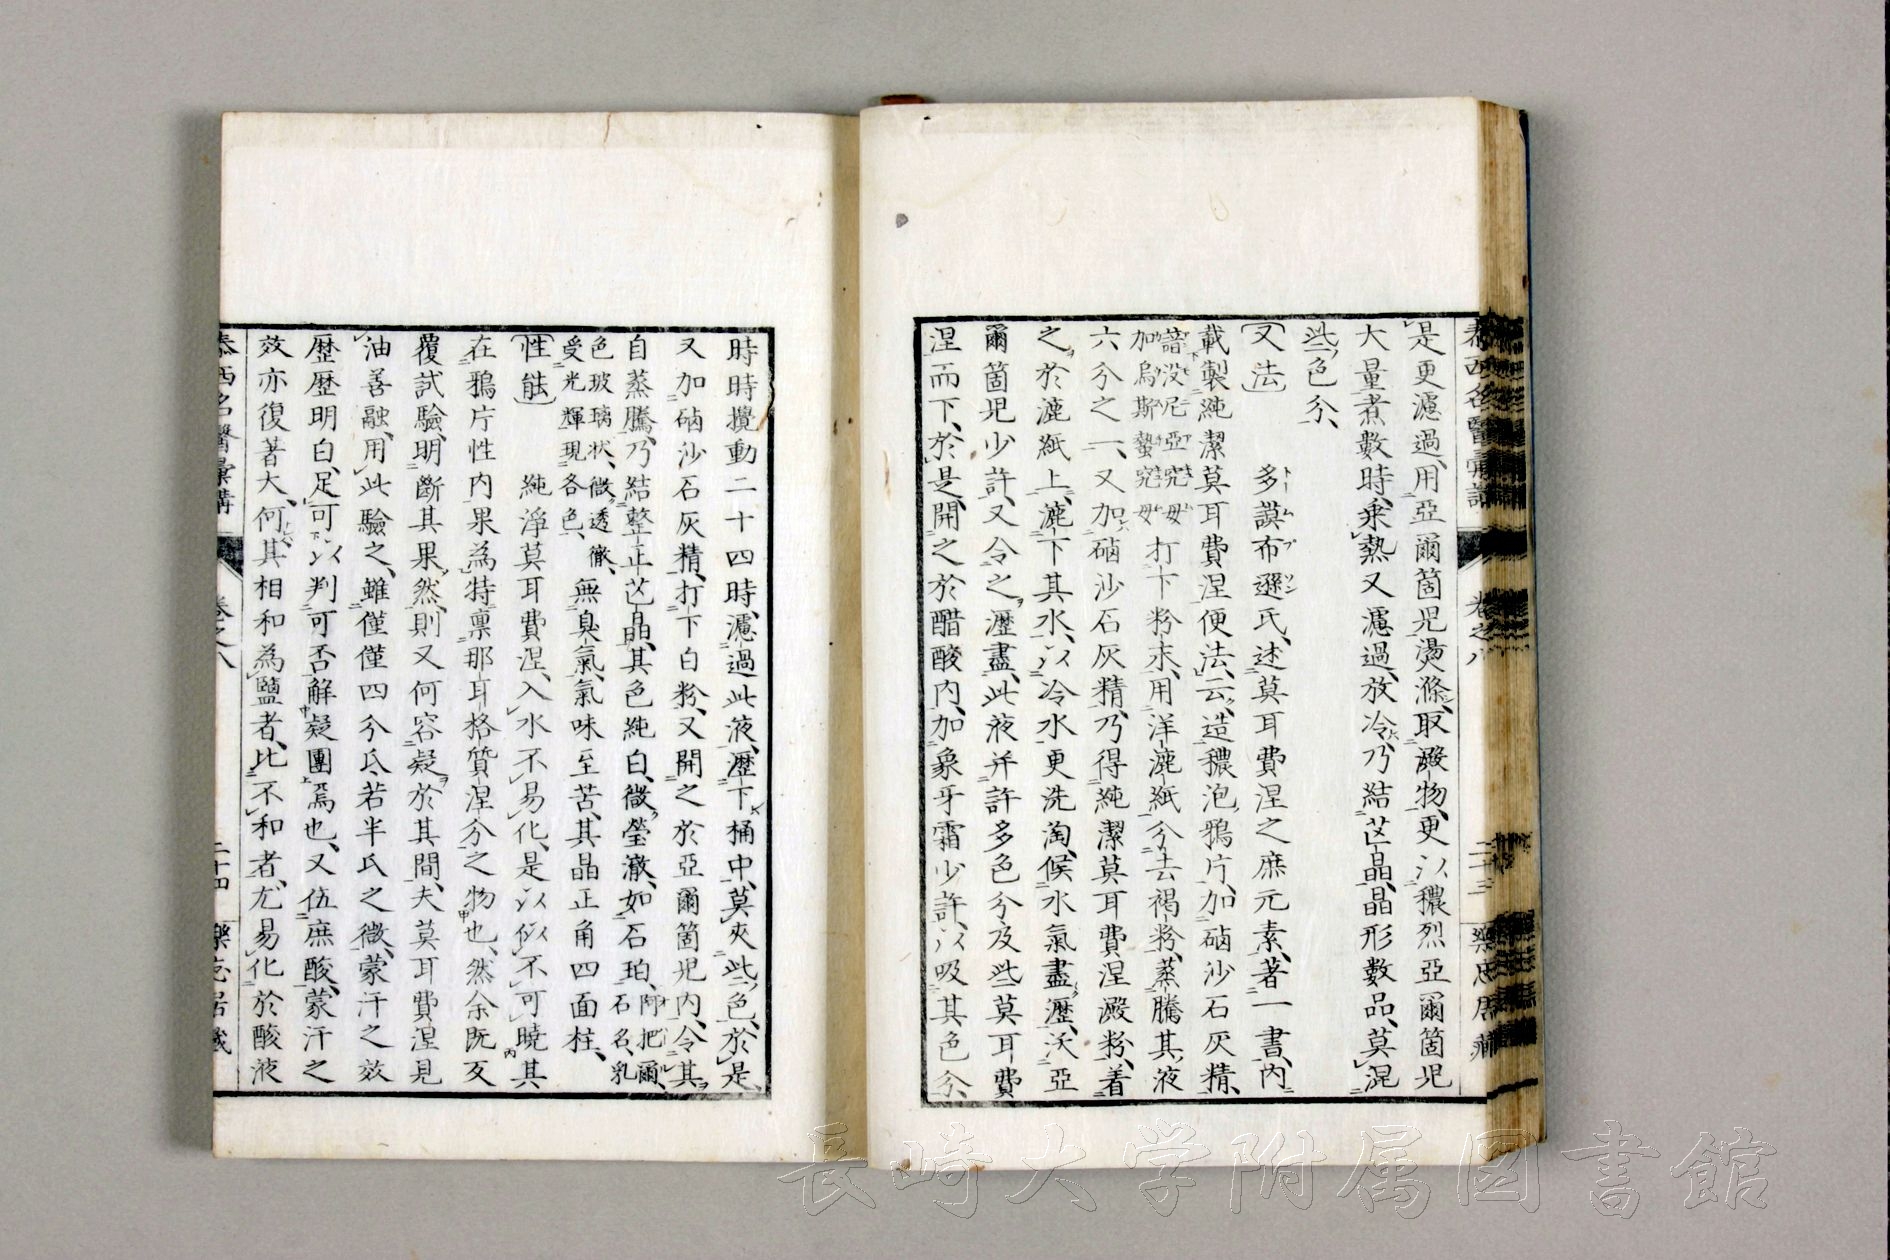 泰西名醫彙講 卷之八 二十三 樂志居藏
是更濾過、用亞爾箇兒燙滌、取澱物、更以穠烈亞爾箇兒
大量煮數時、乘熱又濾過、放冷、乃結芒晶、晶形數品、莫混
些色分、
〔又法〕 多謨布遜氏、述莫耳費涅之庶元素、著一書、内
載製純潔莫耳費涅便法、云、造穠泡鴉片、加磠沙石灰精、
諳没尼亞究母
加烏斯蟄究母
打下粉末、用洋漉紙分去褐粉、蒸騰其液
六分之一、又加磠沙石灰精、乃得純潔莫耳費涅澱粉、着
之於漉紙上、漉下其水、以冷水更洗淘、候水氣盡瀝、沃亞
爾箇兒少許、又令之瀝盡、此液并許多色分及些莫耳費
涅而下、於是、開之於醋酸内、加象牙霜少許、以吸其色分、
時時攪動二十四時、濾過此液、瀝下桶中、莫夾些色、於是
又加磠沙石灰精、打下白粉、又開之於亞爾箇兒内、令其
自蒸騰、乃結整正芒晶、其色純白、微瑩澈、如石珀、
石名、乳
色玻璃状、微透徹、
受光輝現各色、
無臭氣、氣味至苦、其晶正角四面柱、
〔性能〕 純淨莫耳費涅、入水不易化、是以似不可曉其
在鴉片性内果為特稟那耳格質涅分之物也、然余既反
覆試驗、明斷其果然、則又何容疑於其間、夫莫耳費涅見
油善融、用此驗之、雖僅僅四分氐、若半氐之微、蒙汗之效
歷歷明白、足可以判可否解疑團焉也、又伍庶酸、蒙汗之
效亦復著大、何其相和為鹽者、比不和者、尤易化於酸液
泰西名醫彙講 卷之八 二十四 樂志居藏
長崎大学附属図書館